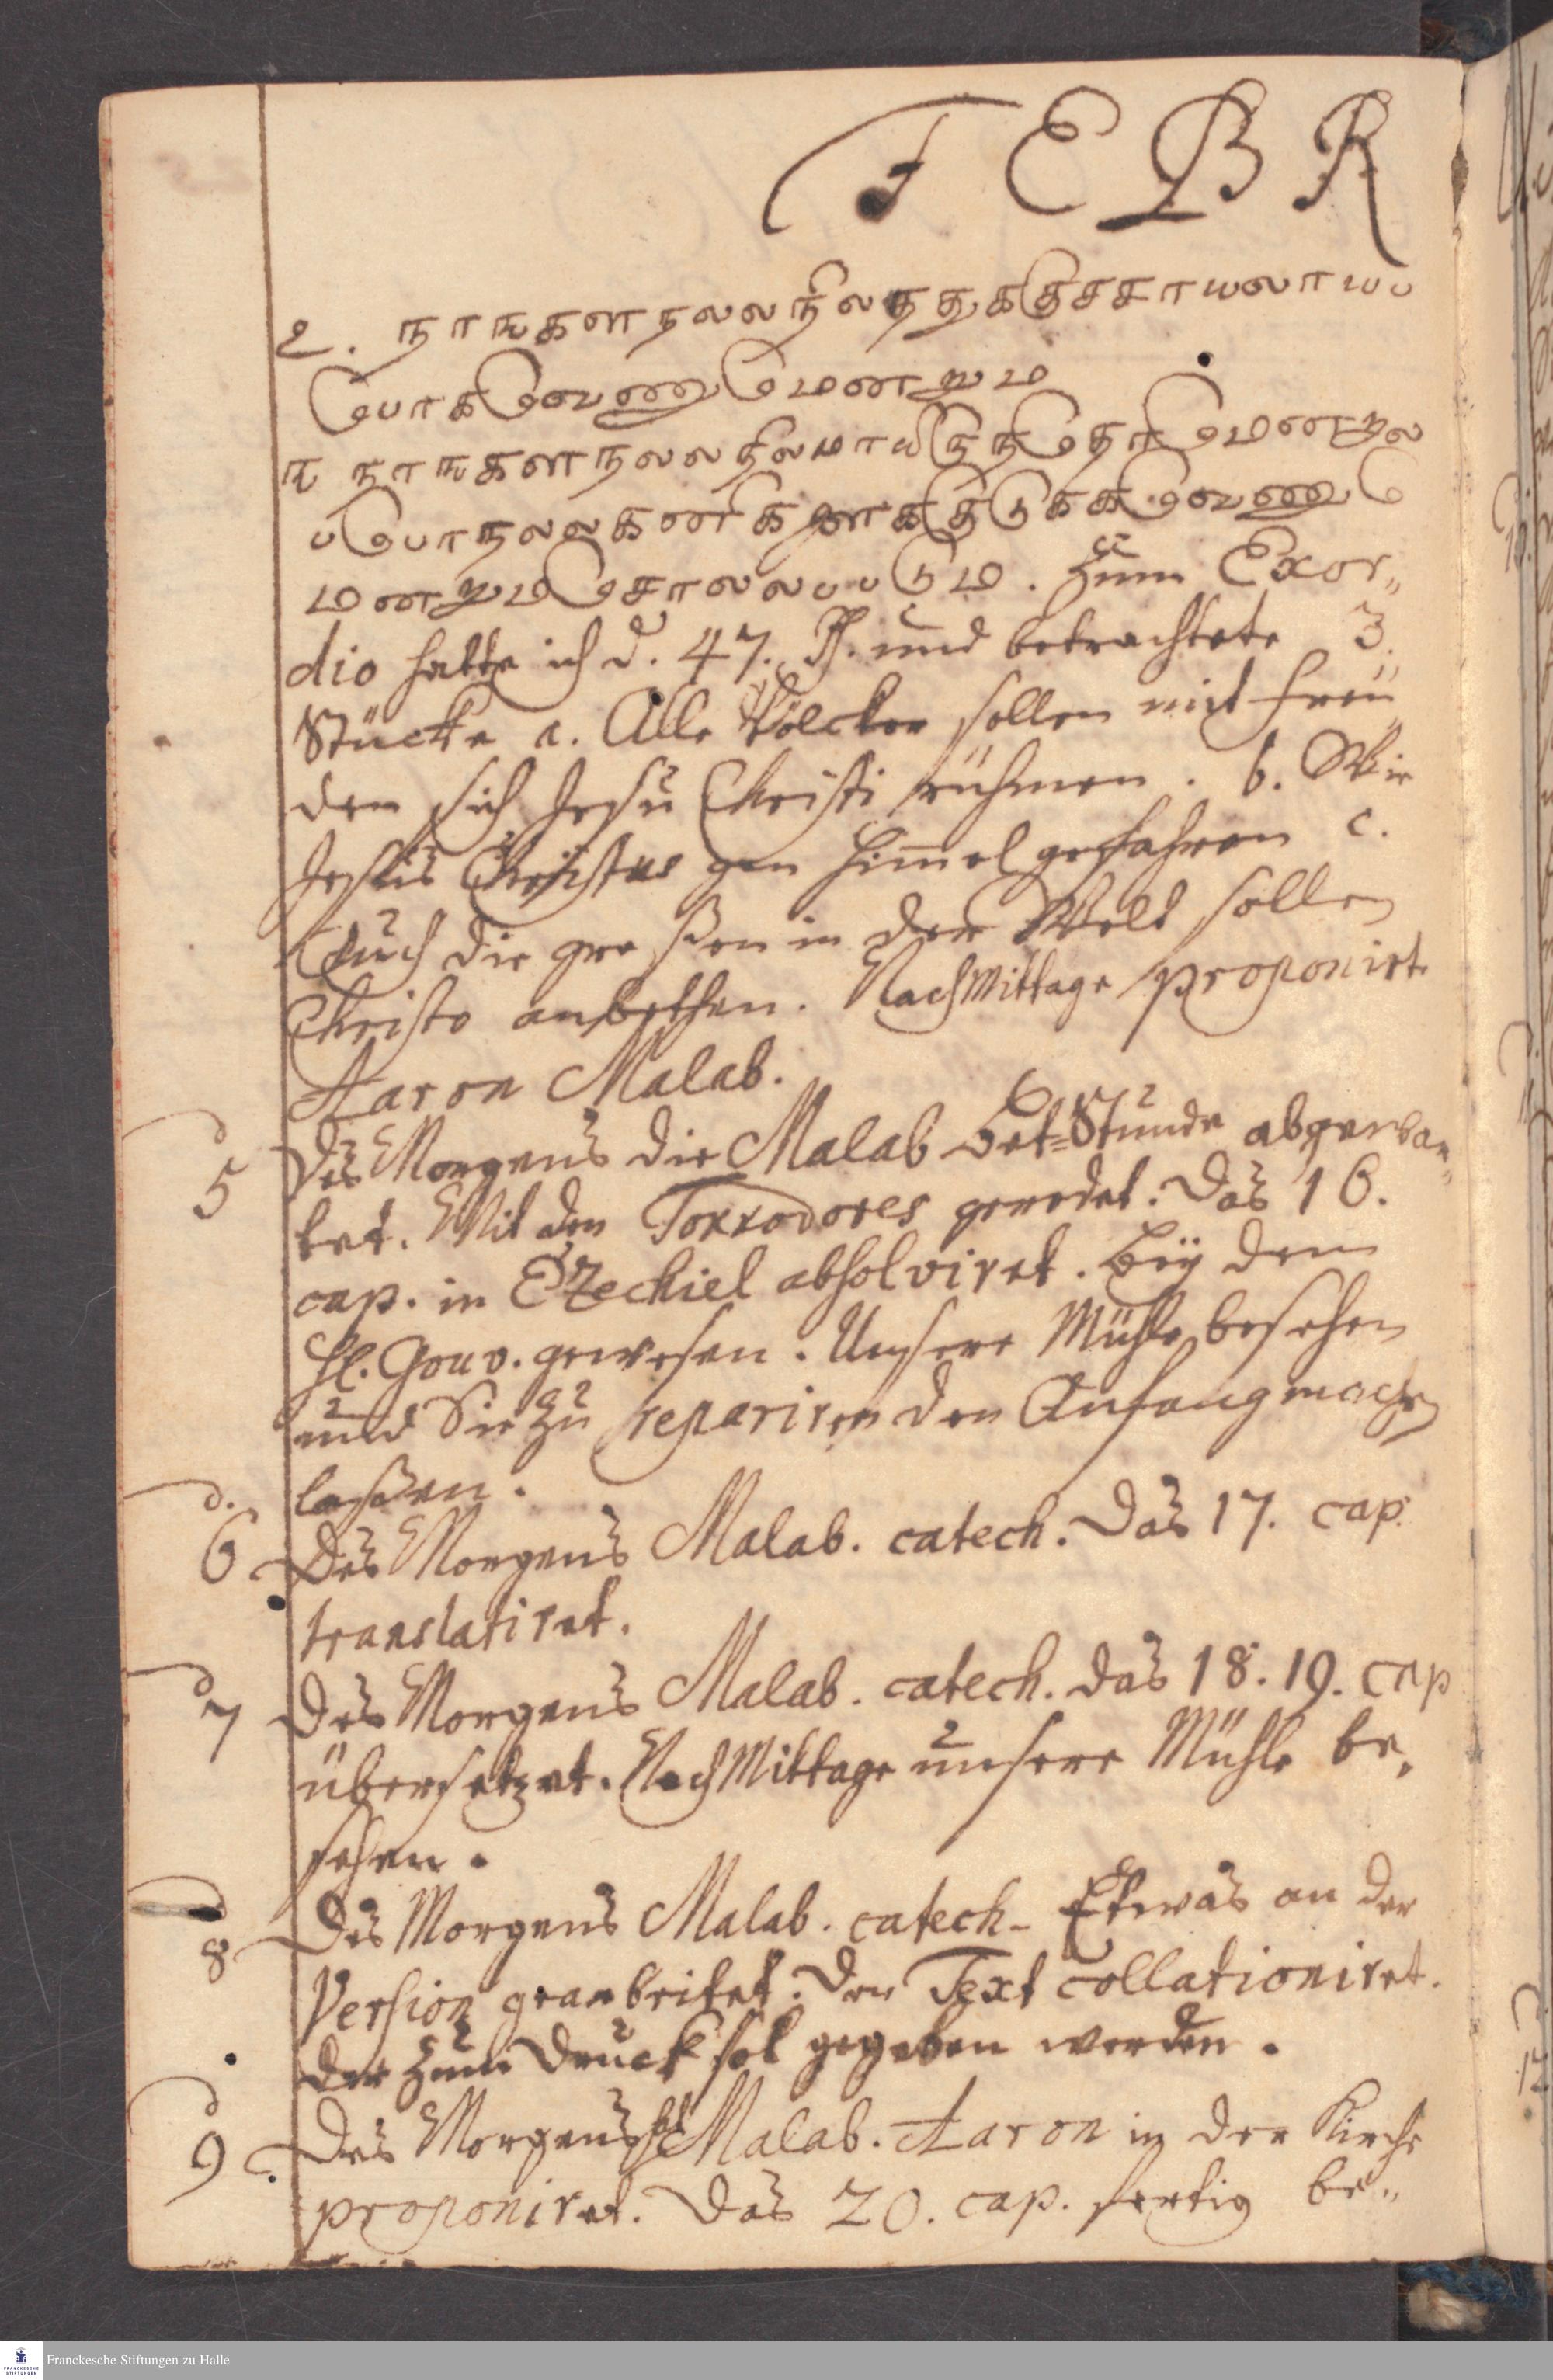 FEBR
௨. நாஙகளநலலநிலததுககுசசாயலாயப
பொகவெணுமெனறும
௩ நாஙகளநலலநிலமாயிருநதொமெனறால
பபொநலலகனிகளாகஇருககவெணு
மெனறும சொலலபபடும. Zum Exor-
dio hatte ich d. 47. Ps. und betrachtete 3.
Stücke a. Alle Völcker sollen mit Freü-
den sich Jesu Christi rühmen. b. Wie
Jesus Christus gen Himel gefahren c.
Auch die großen in der Welt sollen
Christo anbethen. NachMittage proponirt
Aaron Malab.
d. 5 Des Morgens die Malab Bet=Stunde abgewar-
tet. Mit den geredet. Das 16.
cap. in Ezechiel absolviret. Bey dem
H. Gouv. gewesen. Unsere Mühle besehen
und Sie zu repariren den Anfang machen
laßen.
d. 6 Des Morgens Malab. catech. Das 17. cap.
translatiret.
d 7 Des Morgens Malab. catech. Das 18. 19. cap
übersetzet. NachMittage unsere Mühle be-
sehen.
d 8 Des Morgens Malab. catech- Etwas an der
Version gearbeitet. Den Text collationiret.
der zum Druck sol gegeben werden.
d 9 Des Morgens Malab. Aaron in der Kirche
proponiret. Das 20. cap. fertig be-
Franckesche Stiftungen zu Halle